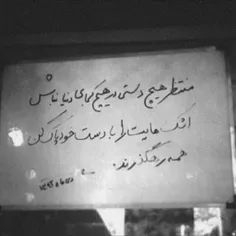 منتظر هیچ دستی در هیچ کجای دنیا نباش
اشک هایت را با دست خود پاک کن
همه رهگذرند